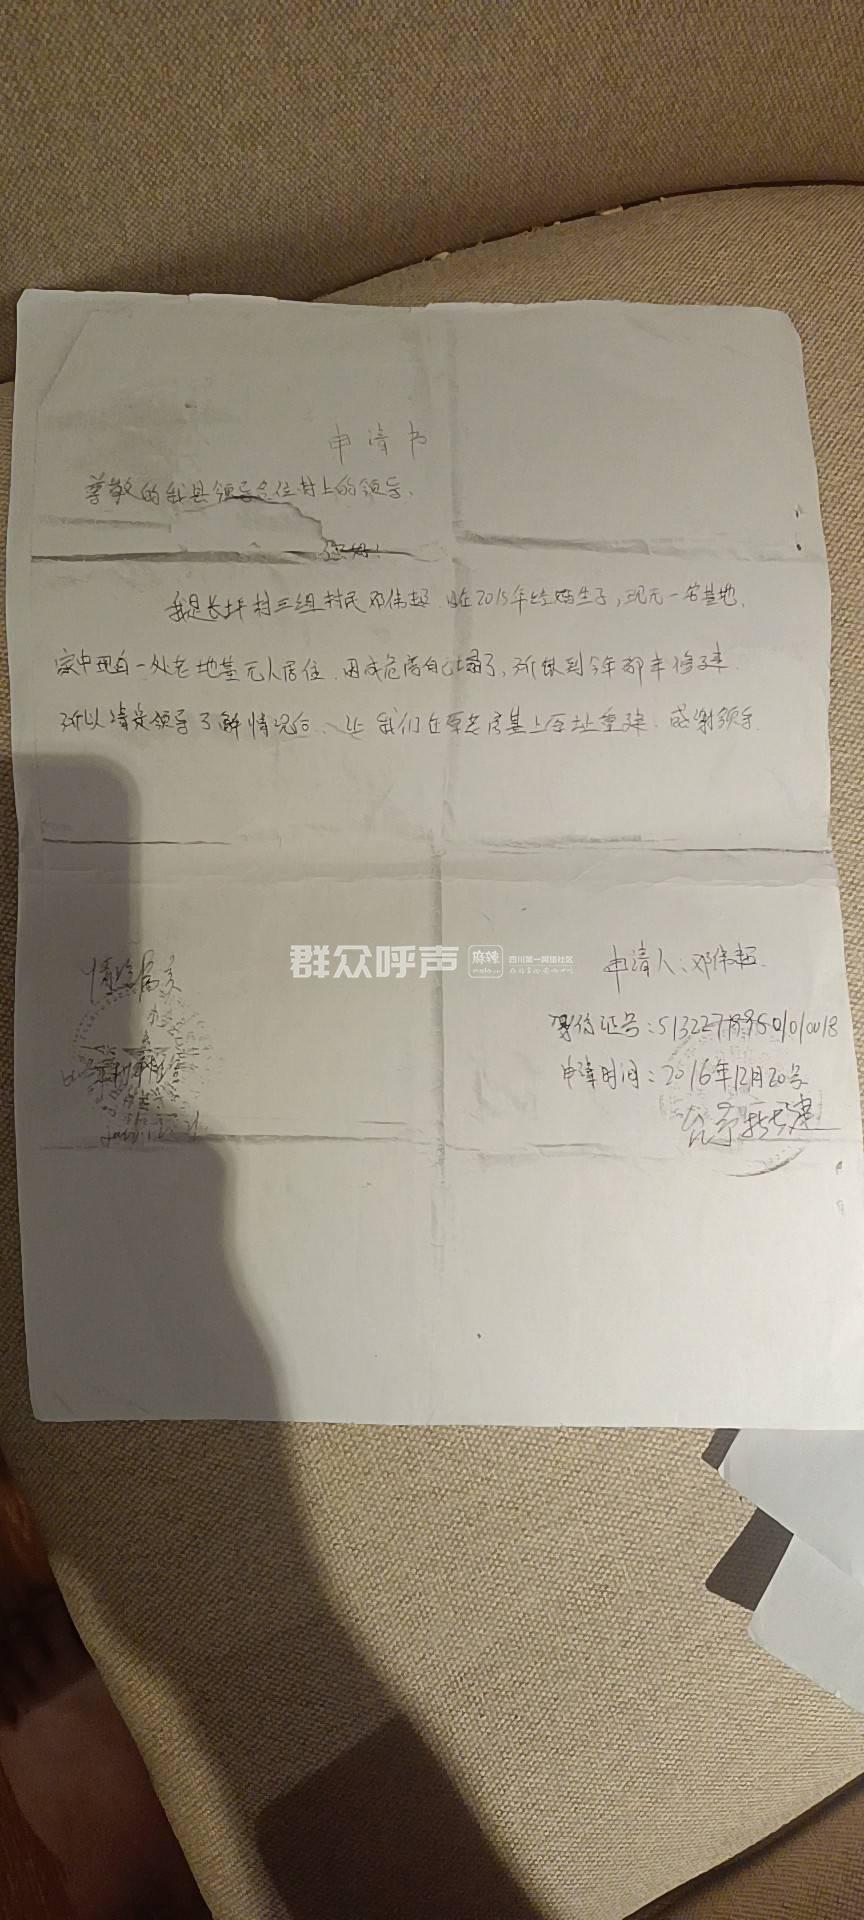 申请书
尊敬的我县领导各位村上的领导.
您好!
我是长坪村三组村民邓伟超. 自在2015年结婚生子,现无一宅基地.
家中现有一处老地基无人居住.因成危房自己塌了,所以到今年都未修建.
所以请求领导了解情况后.让我们在原老房基上原址重建.感谢领导.
情况属实
群众呼声 麻辣 四川第一网络社区
申请人:邓伟超.
身份证号:
申请时间:2016年12月20号